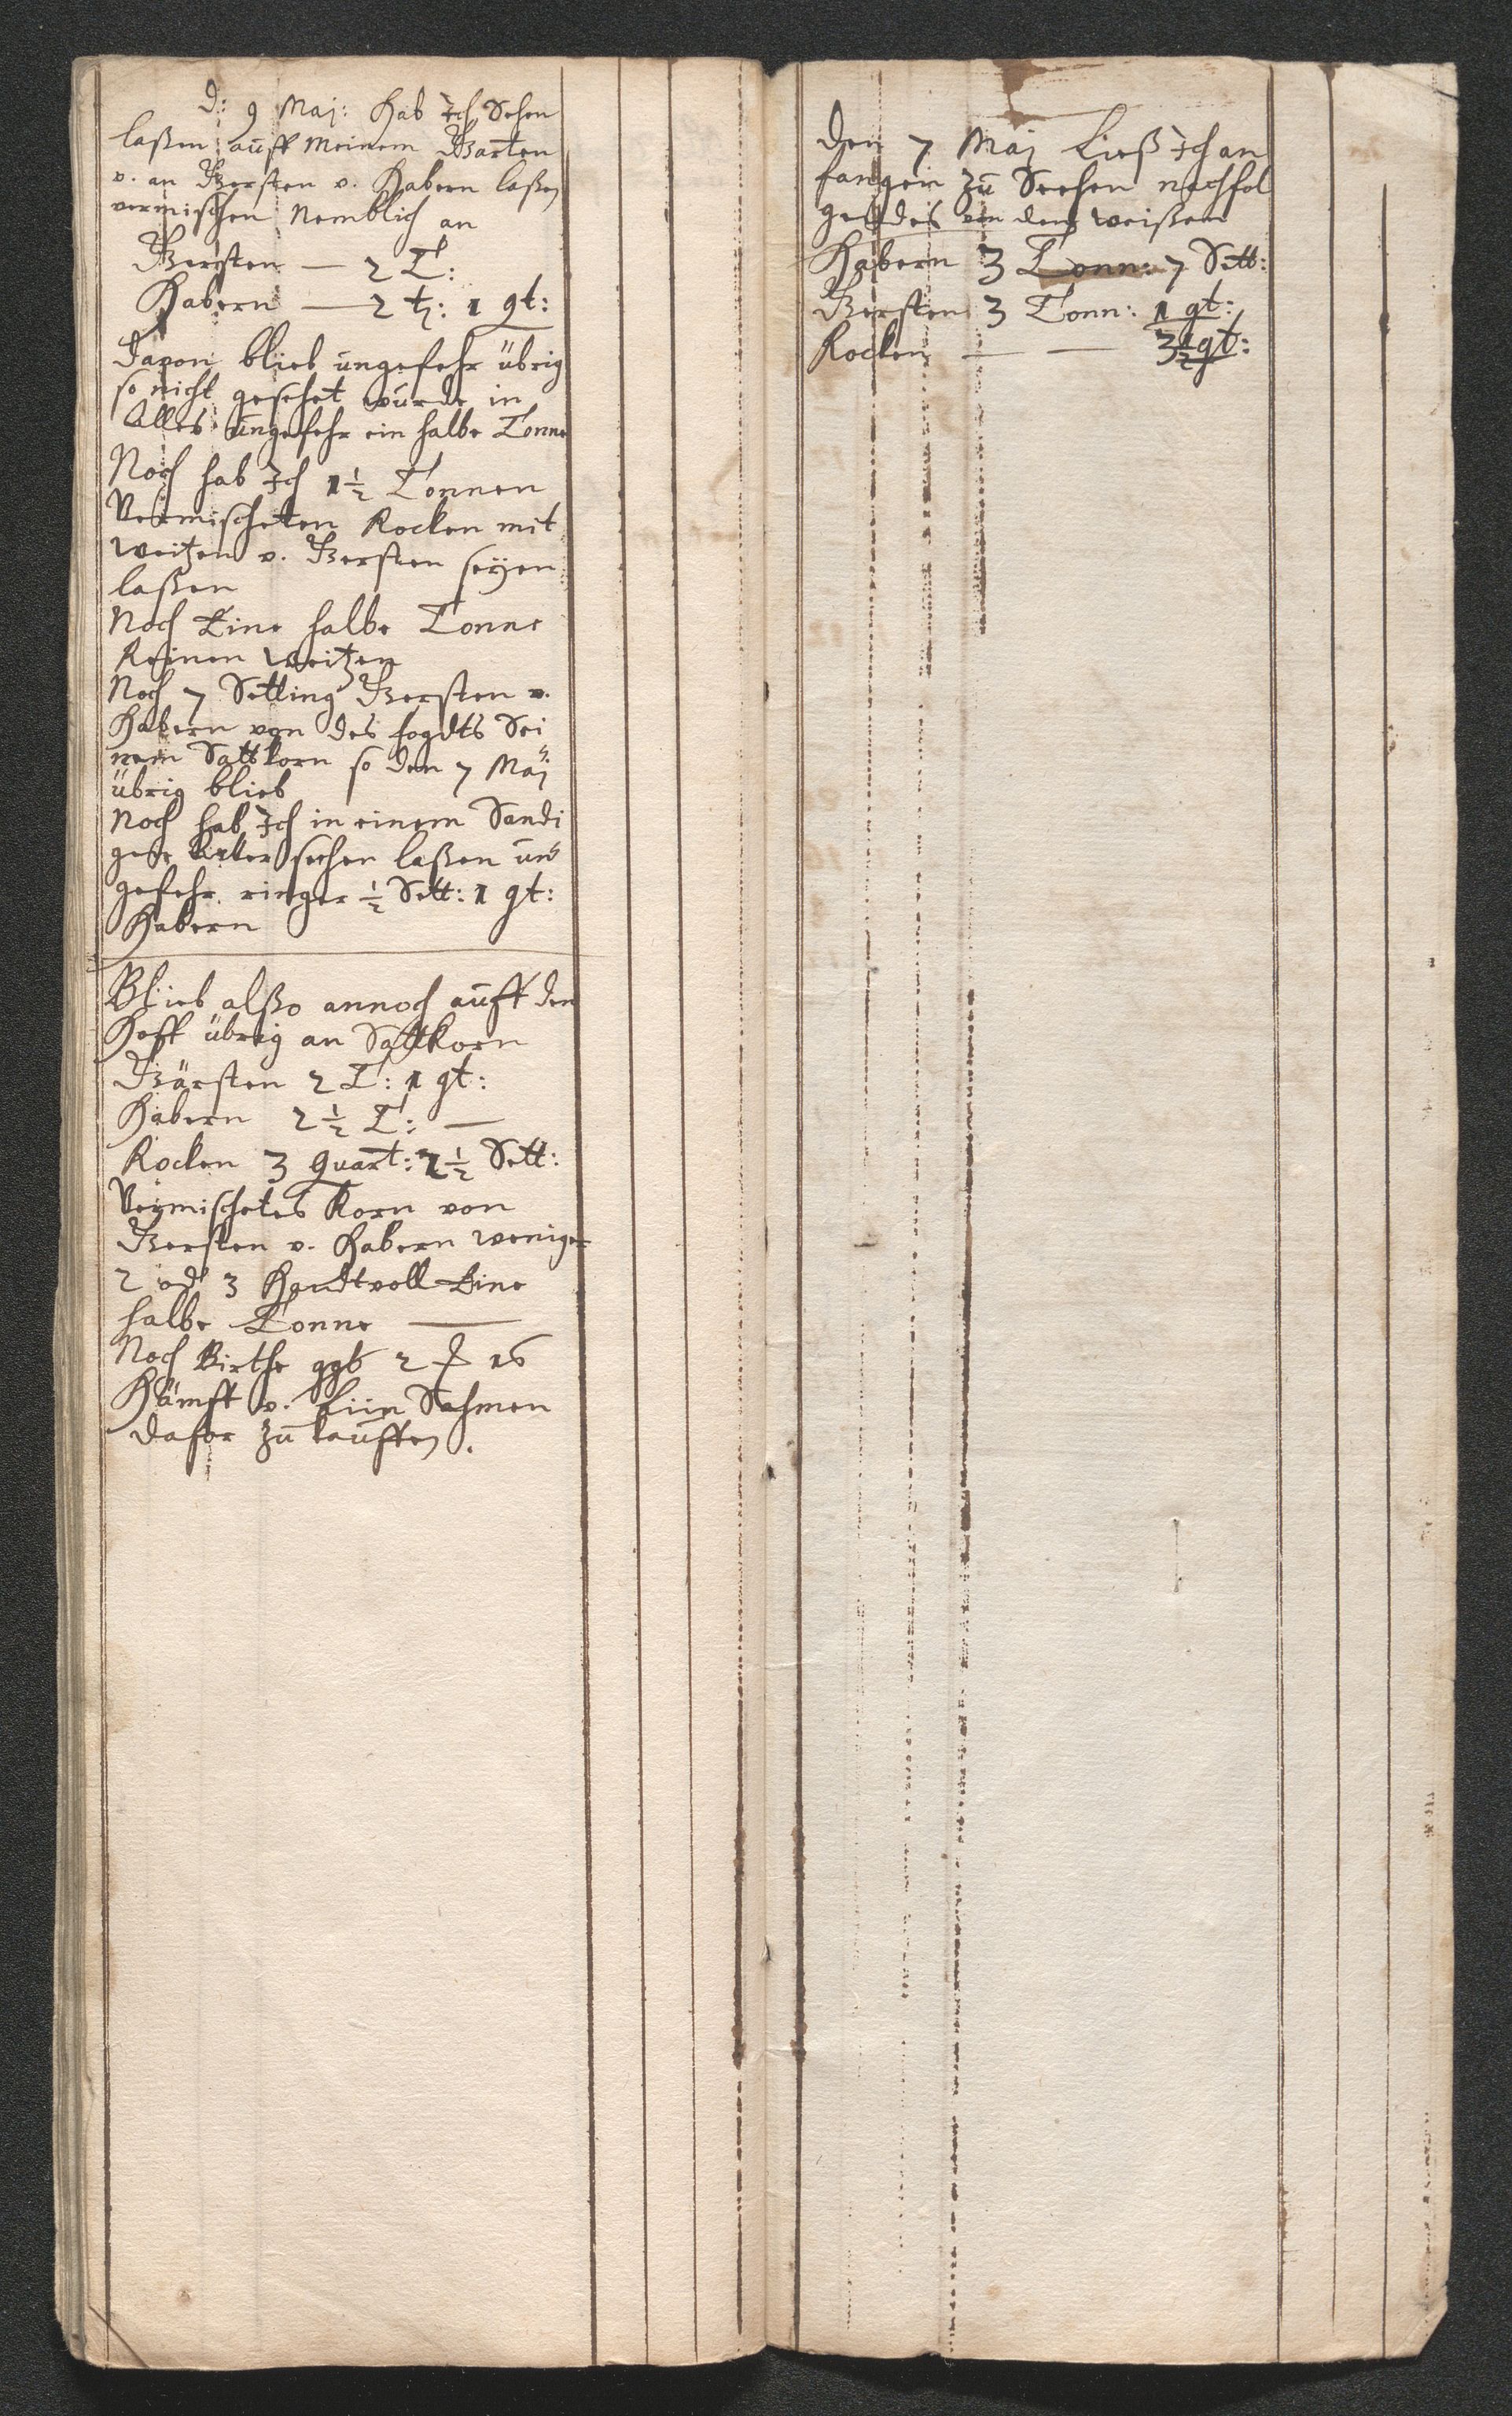 d: 9 Maj: Hab Ich Sehen
laßen auff meinem Garten
v. an Gersten v. Habern laßen
vermischen Nemblich an
Gersten — 2 T:
Habern — 2 t: 1 qt:
Davon blieb ungefehr übrig
so nicht gesehet wurde in
Alles ungefehr ein halbe Tonne
Noch hab Ich 1½ Tonnen
Vermischeten Rocken mit
Weitzen v. Gersten seyen
laßen
Noch Eine halbe Tonne
Reinen Weitzen
Noch 7 Setting Gersten v.
Habern von des fogdts Sei
nem Sattkorn so den 7 Maj
übrig blieb
Noch hab Ich in einem Sandi
gen Acker sehen laßen un
gefehr ringer ½ Sett: 1 qt:
Habern
Blieb alßo annoch auff den
Hoff übrig an Sattkorn
Gärsten 2 T: 1 qt:
Habern 2½ T: —
Rocken 3 quart: 2½ Sett:
Vermischetes Korn von
Gersten v. Habern weniger
2 od 3 Handtvoll Eine
halbe Tonne —
Noch Birthe 2 16
Hämff v. Liin Sahmen
dafor zu kauffen.
Den 7 Maj Ließ Ich an
fangen zu Seehen nachfol
gendes von dem weißen
Habern 3 Tonn: 7 Sett:
Gersten 3 Tonn: 1 qt:
Rocken — — 3½ qt: